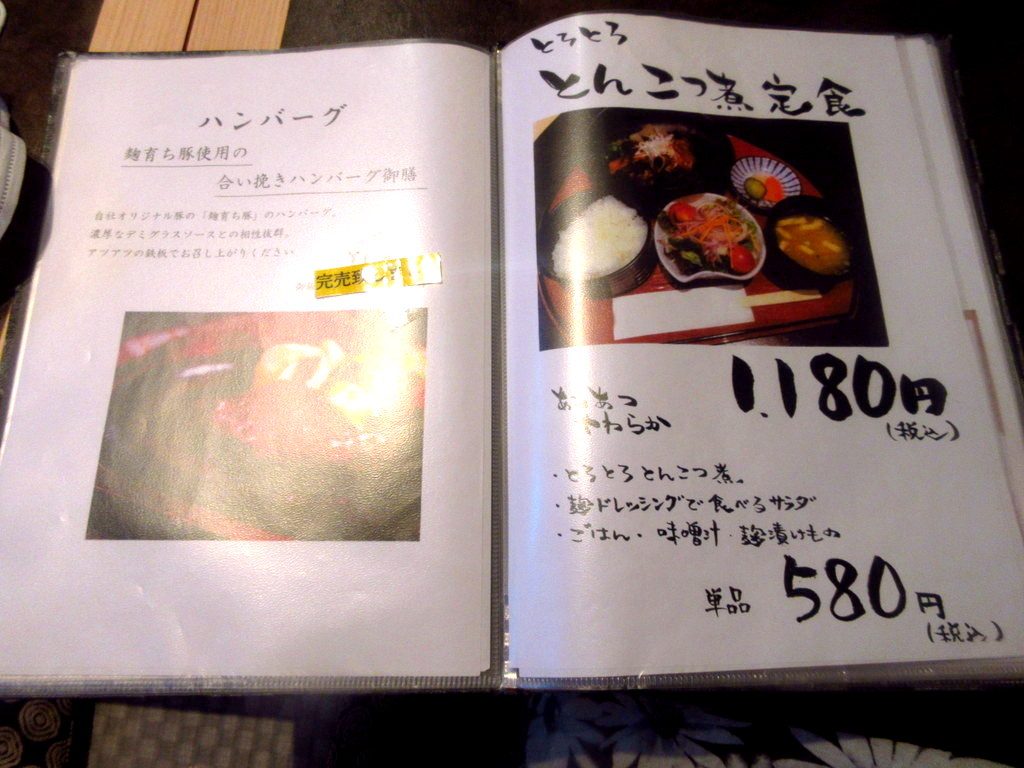 ハンバーグ
麹育ち豚使用の
合い挽きハンバーグ御膳
自社オリジナル豚の「麹育ち豚」のハンバーグ。
濃厚なデミグラスソースとの相性抜群。
アツアツの鉄板でお召し上がりください。
完売致
とろとろ
とんこつ煮定食
1,180円
(税込)
あつあつ
やわらか
・とろとろとんこつ煮。
・麹ドレッシングで食べるサラダ
・ごはん・味噌汁・麹漬けもの
単品 580円
(税込)